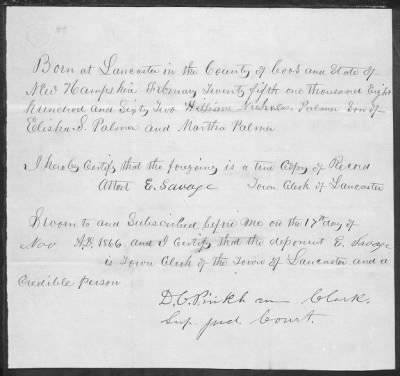 Born at Lancaster in the County of Coos and State of
New Hampshire February Twenty fifth one thousand Eight
hundred and Sixty Two William Nicholas Palmer Son of
Elisha S. Palmer and Martha Palmer
I hereby Certify that the foregoing is a true Copy of Record
Attest E. Savage Town Clerk of Lancaster
Sworn to and Subscribed before me on the 17th day of
Nov A.D. 1866 and I Certify that the deponent E. Savage
is Town Clerk of the Town of Lancaster and a
Credible Person
D. C. Pinkham Clerk.
Sup. Jud. Court.